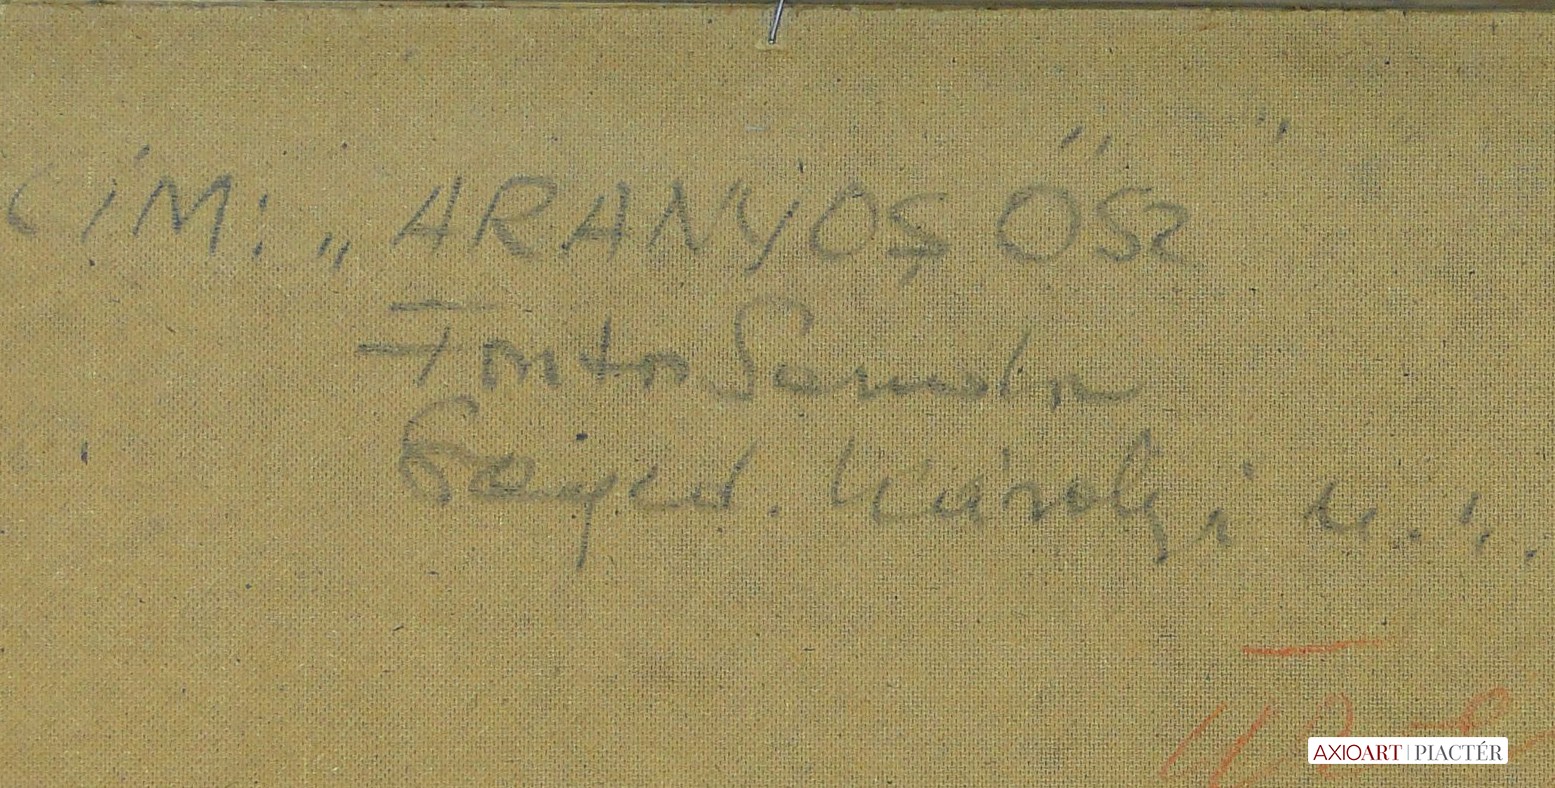 CÍM: „ARANYOS ŐSZ"
Fontos Sándor
Károlyi u. 1.
AXIOART | PIACTÉR